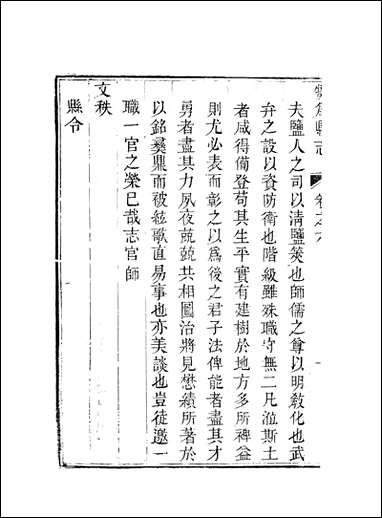 縣志 卷之六
夫鹽人之司以清鹽筴也師儒之尊以明敎化也武
弁之設以資防衛也階級雖殊職守無二凡涖斯土
者咸得備登苟其生平實有建樹於地方多所裨益
則尤必表而彰之以為後之君子法俾能者盡其才
勇者盡其力夙夜兢兢共相圖治將見懋績所著於
以銘彝鼎而被絃歌直易事也亦美談也豈徒邀一
職一官之榮已哉志官師
文秩
縣令